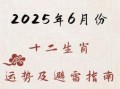 2025年6月份
十二生肖
运势及避雷指南